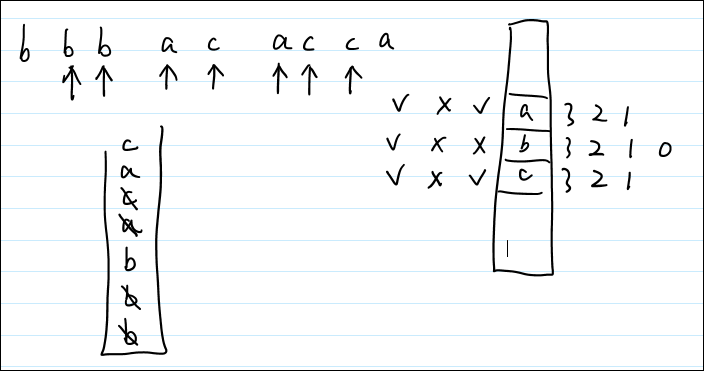 b b b a c a c c a
↑ ↑ ↑ ↑ ↑ ↑ ↑
c
a
c
a
b
b
b
√ × √ a 3 2 1
√ × × b 3 2 1 0
√ × √ c 3 2 1